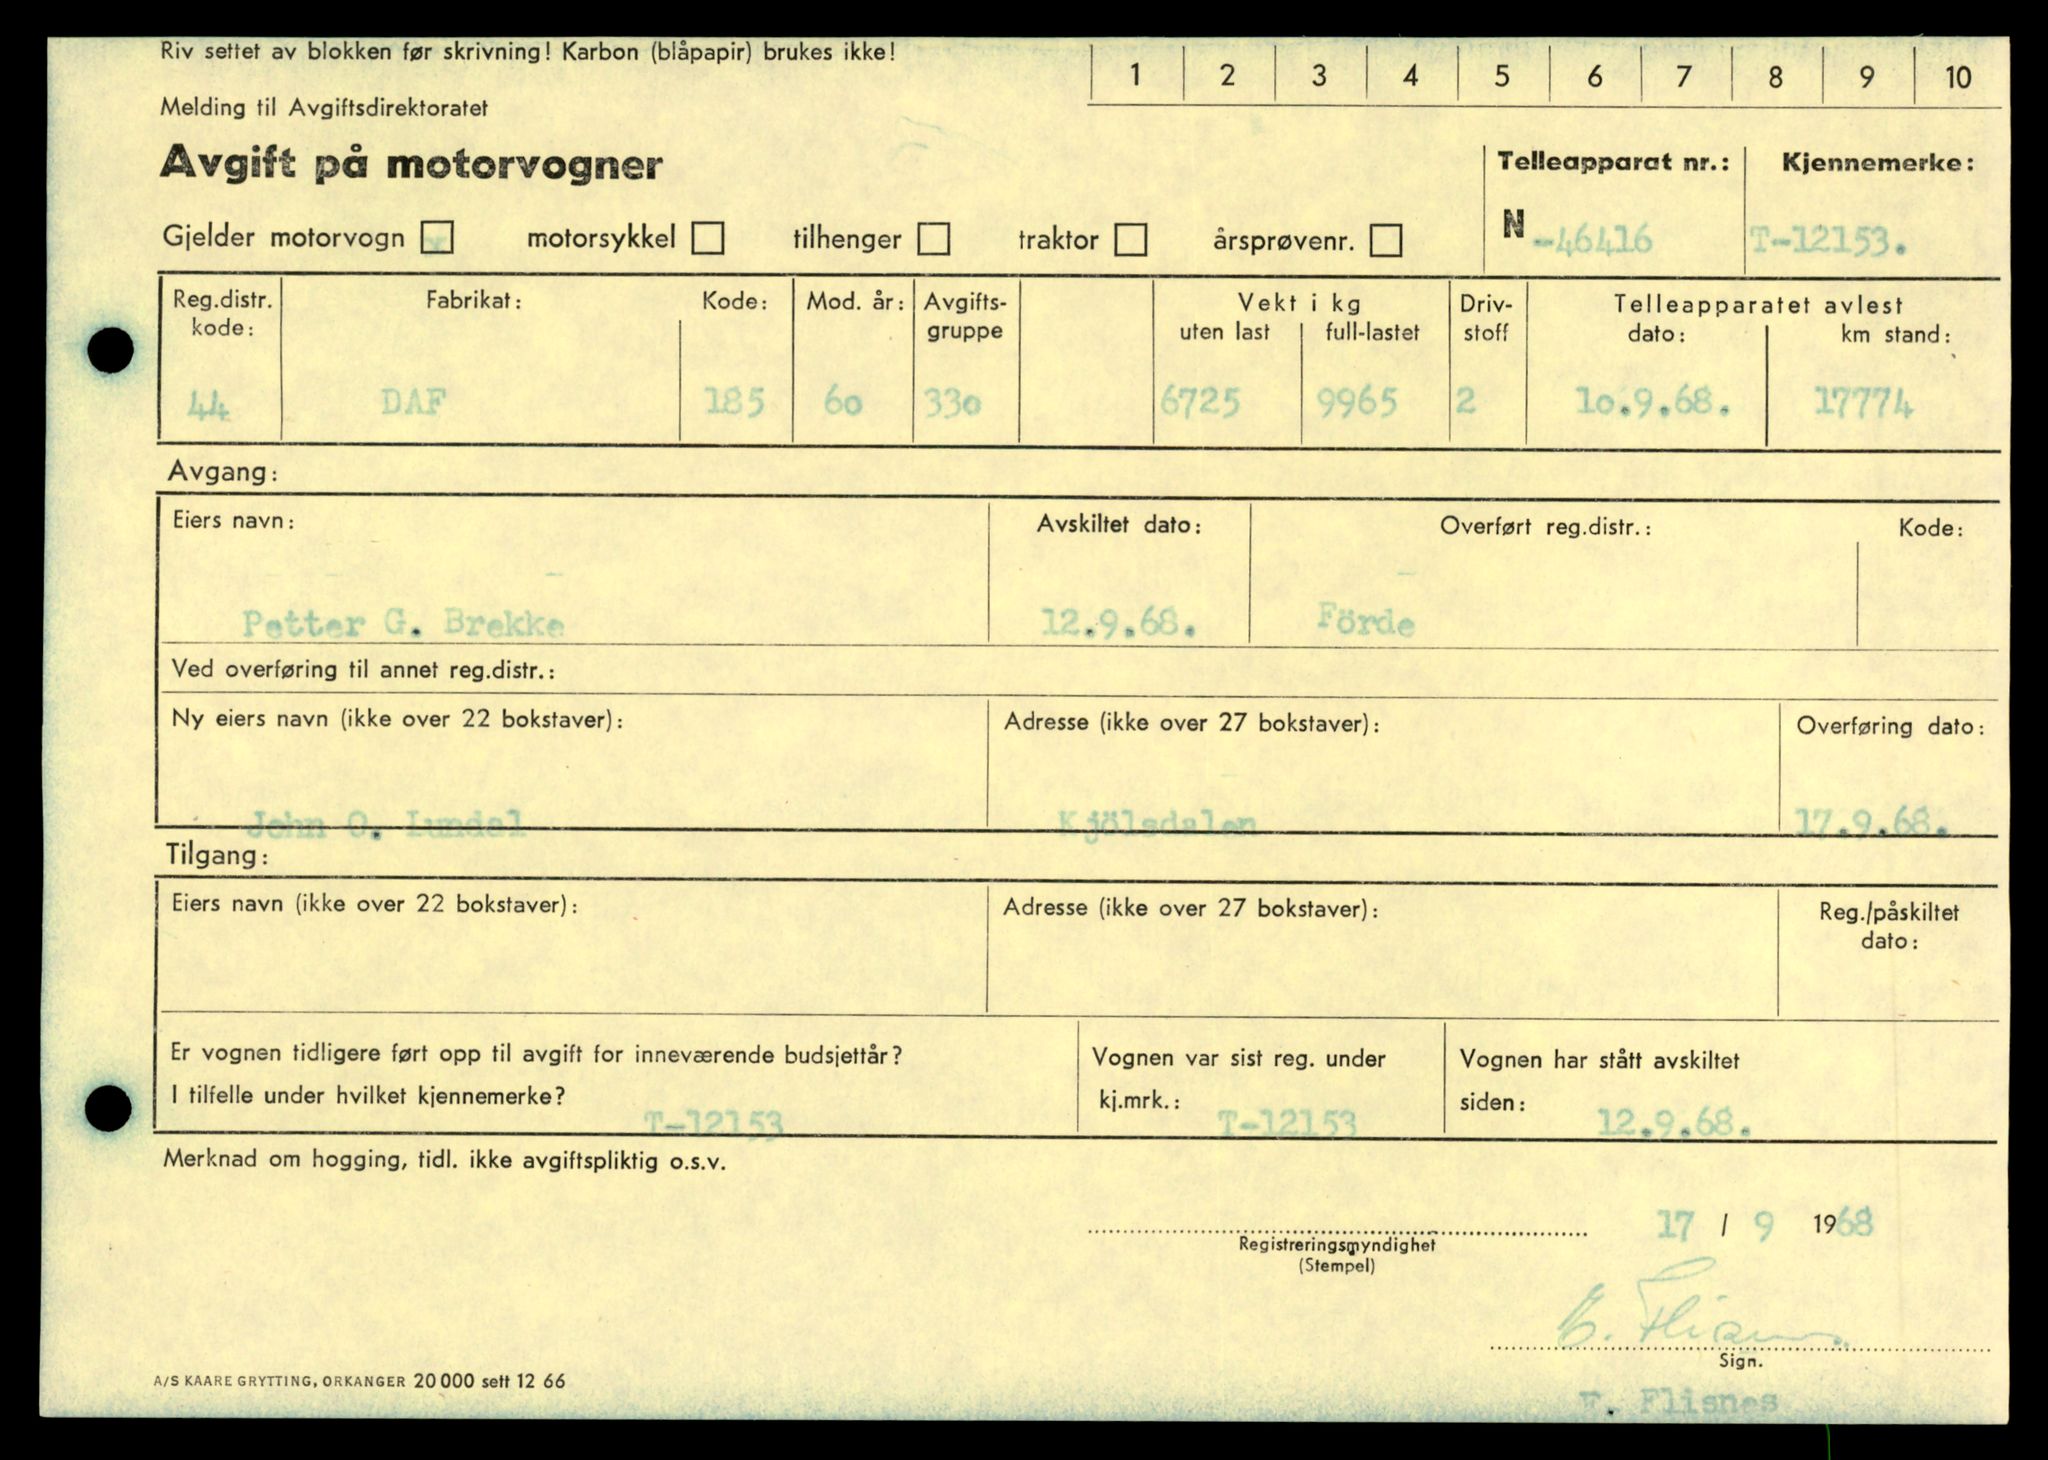 Riv settet av blokken før skrivning! Karbon (blåpapir) brukes ikke!
1 2 3 4 5 6 7 8 9 10
Melding til Avgiftsdirektoratet
Avgift på motorvogner
Telleapparat nr.: Kjennemerke:
N -46416 T-12153.
Gjelder motorvogn x motorsykkel tilhenger traktor årsprøvenr.
Reg.distr. kode: Fabrikat: Kode: Mod. år: Avgifts-gruppe Vekt i kg Driv-stoff Telleapparatet avlest
uten last full-lastet dato: km stand:
44 DAF 185 60 330 6725 9965 2 10.9.68. 17774
Avgang:
Eiers navn: Avskiltet dato: Overført reg.distr.: Kode:
Petter G. Brekke 12.9.68. Förde
Ved overføring til annet reg.distr.:
Ny eiers navn (ikke over 22 bokstaver): Adresse (ikke over 27 bokstaver): Overføring dato:
John O. Lundal Kjölsdalen 17.9.68.
Tilgang:
Eiers navn (ikke over 22 bokstaver): Adresse (ikke over 27 bokstaver): Reg./påskiltet
dato:
Er vognen tidligere ført opp til avgift for inneværende budsjettår? Vognen var sist reg. under Vognen har stått avskiltet
I tilfelle under hvilket kjennemerke? T-12153 kj.mrk.: T-12153 siden: 12.9.68.
Merknad om hogging, tidl. ikke avgiftspliktig o.s.v.
17 / 9 1968
Registreringsmyndighet
(Stempel)
E. Flisnes
Sign.
A/S KAARE GRYTTING, ORKANGER 20 000 sett 12 66
E. Flisnes